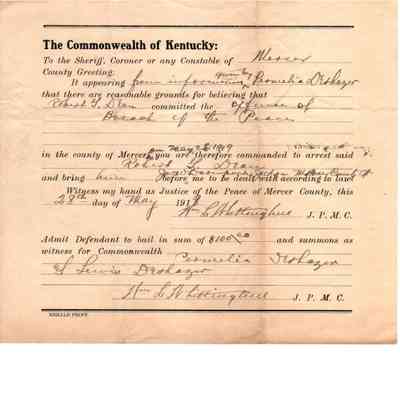 The Commonwealth of Kentucky:
To the Sheriff, Coroner or any Constable of Mercer
County Greeting:
It appearing from information given by Permelia Deshazer
that there are reasonable grounds for believing that
Robert T. Dean committed the offense of
Breach of the Peace
in the county of Mercer on May 28 1919 you are therefore commanded to arrest said
Robert T. Dean
and bring him before me to be dealt with according to law
Witness my hand as Justice of the Peace of Mercer County, this
28th day of May 191
Wm L Whittinghill J. P. M. C.
Admit Defendant to bail in sum of $100.00 and summons as
witness for Commonwealth Permelia Deshazer
Lewis Deshazer
Wm L Whittinghill J. P. M. C.